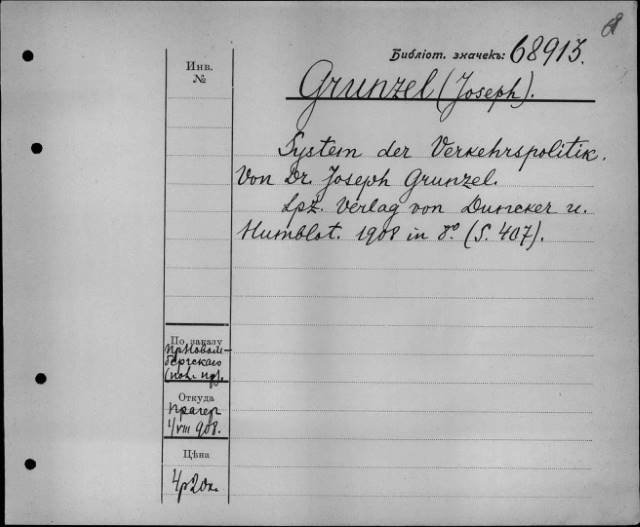 Библіот. значекъ: 68913.
Grunzel (Joseph).
Инв.
№
System der Verkehrspolitik.
Von Dr. Joseph Grunzel.
Lpz. Verlag von Duncker u.
Humblot. 1908 in 8º. (S. 407).
По заказу
пр Новом-
бергскаго
Откуда
Прагер
1/VIII 908.
Цѣна
4р 20к.